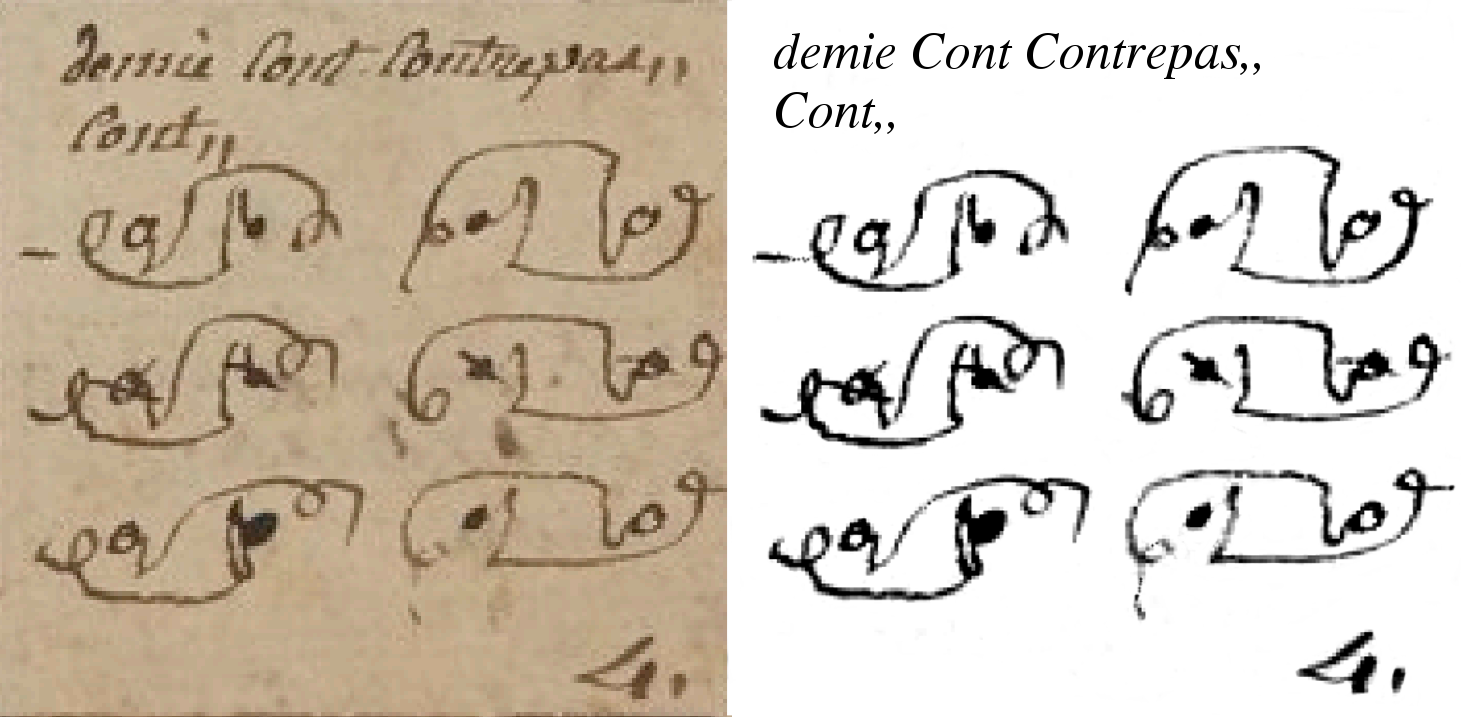 demie Cont Contrepas,, demie Cont Contrepas,,
Cont,, Cont,,
4. 4.